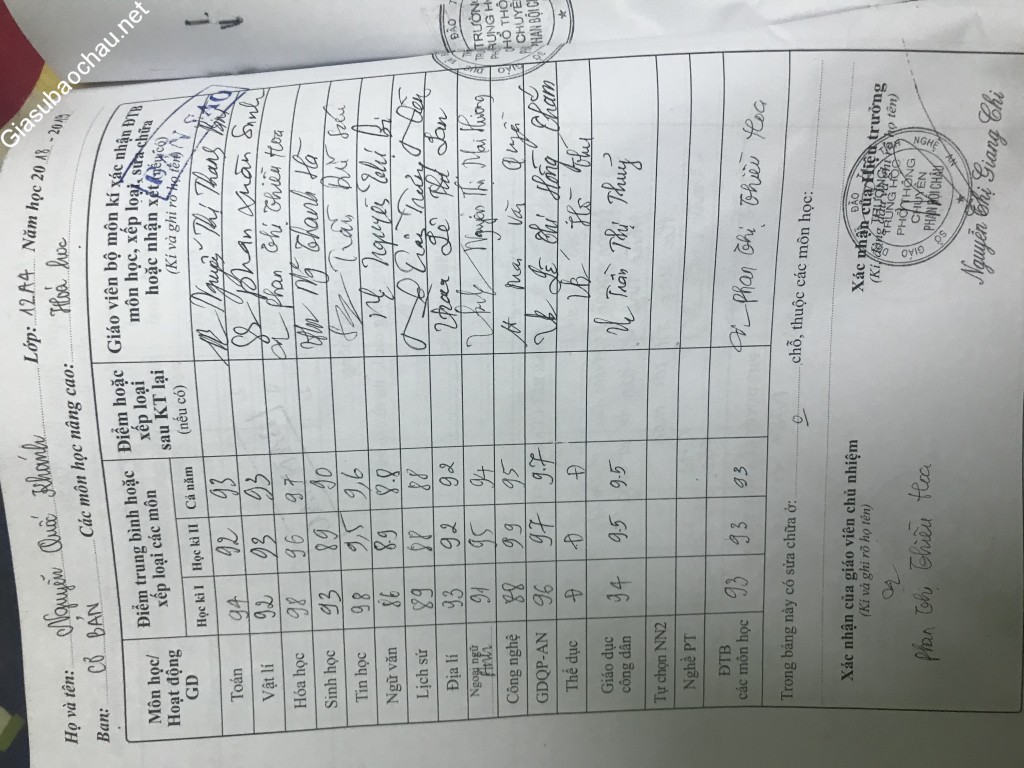 Giasubaochau.net
Họ và tên: Nguyễn Quốc Khánh Lớp: 12A4 Năm học 2018 - 2019
Ban: Cơ BẢN Các môn học nâng cao: Hoá học
Môn học/ Hoạt động GD
Điểm trung bình hoặc xếp loại các môn
Học kì I Học kì II Cả năm
Điểm hoặc xếp loại sau KT lại (nếu có)
Giáo viên bộ môn kí xác nhận ĐTB môn học, xếp loại, sửa chữa hoặc nhận xét (nếu có)
(Kí và ghi rõ họ tên)
Toán 94 92 93 Nguyễn Thị Thanh
Vật lí 92 93 93 Phan Xuân Sinh
Hóa học 98 96 97 Phan Thị Thiều Hoa
Sinh học 93 89 90 Thanh Hà
Tin học 98 9,5 9,6 Trần
Ngữ văn 86 89 8.8 Nguyễn Thị
Lịch sử 89 88 88
Địa lí 93 92 92 Lê
Ngoại ngữ Anh 91 95 94 Nguyễn Thị Mai Hương
Công nghệ 88 99 95 Văn Quyền
GDQP-AN 96 97 9.7 Lê Thị Hồng Thắm
Thể dục Đ Đ Đ Hồ
Giáo dục công dân 94 95 95 Trần Thị Thuỷ
Tự chọn NN2
Nghề PT
ĐTB các môn học 93 93 93 Phan Thị Thiều Hoa
Trong bảng này có sửa chữa ở: 0 chỗ, thuộc các môn học:
Xác nhận của giáo viên chủ nhiệm
(Kí và ghi rõ họ tên)
Phan Thị Thiều Hoa
Xác nhận của Hiệu trưởng
TRƯỜNG
TRUNG HỌC
PHỔ THÔNG
CHUYÊN
PHAN BỘI CHÂU
Nguyễn Thị Giang Chi
TRƯỜNG
TRUNG H
PHỔ THÔ
CHUYÊ
PHAN BỘI C